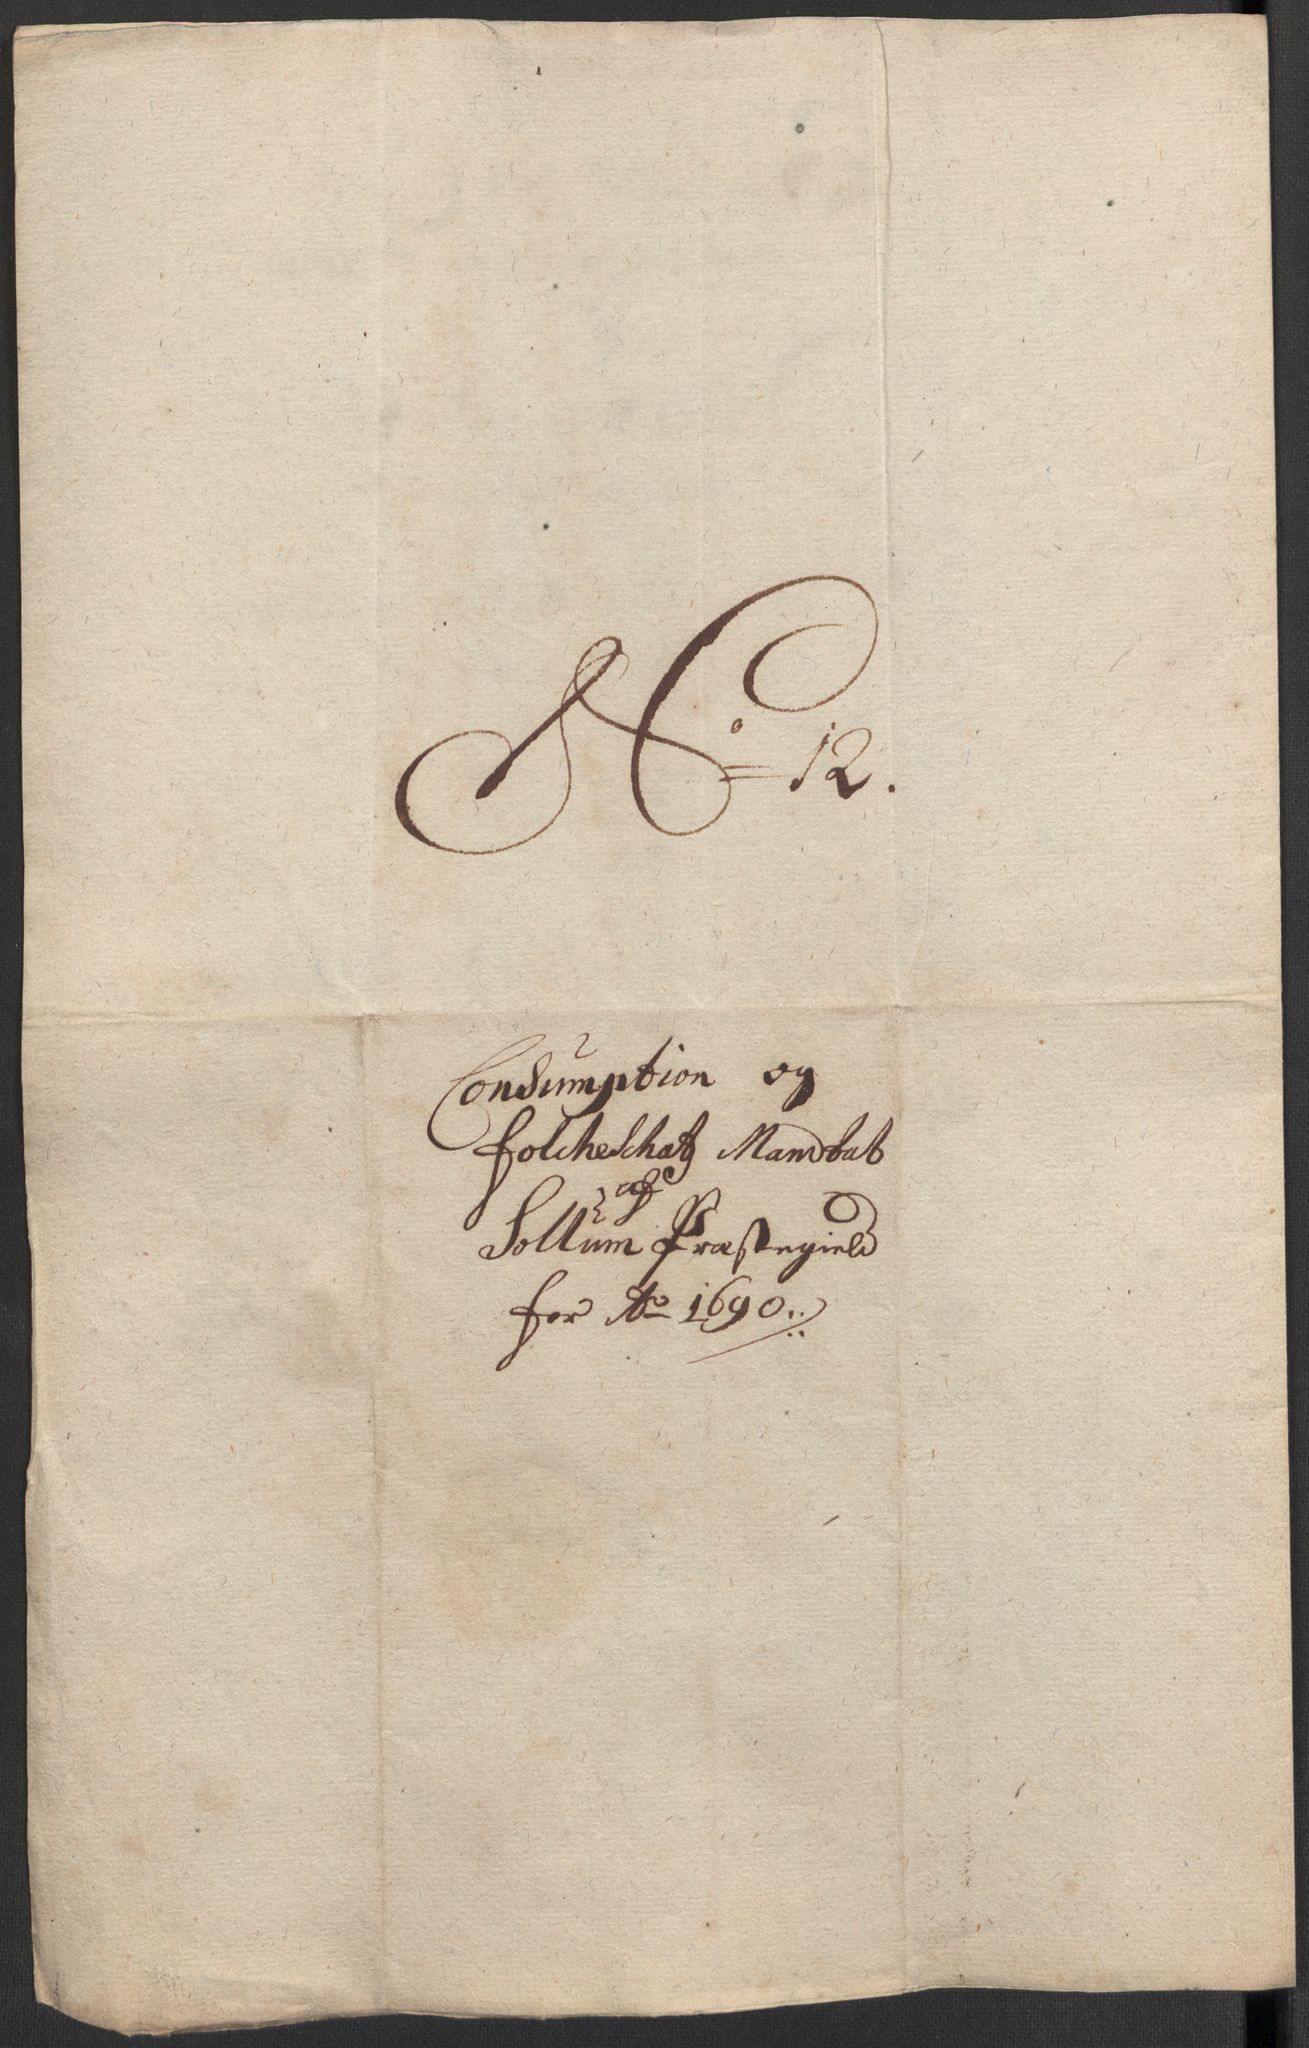 No 12.
Consumption og
folcheschatz Mandtal
af
Sollum Præstegield
for Ao 1690